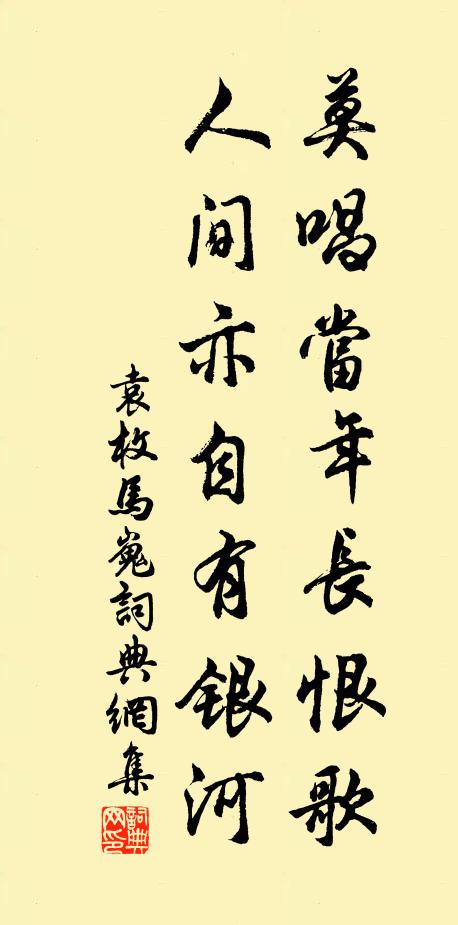 莫唱當年長恨歌
人間亦自有銀河
袁枚馬嵬詞典網集
詞典
网印